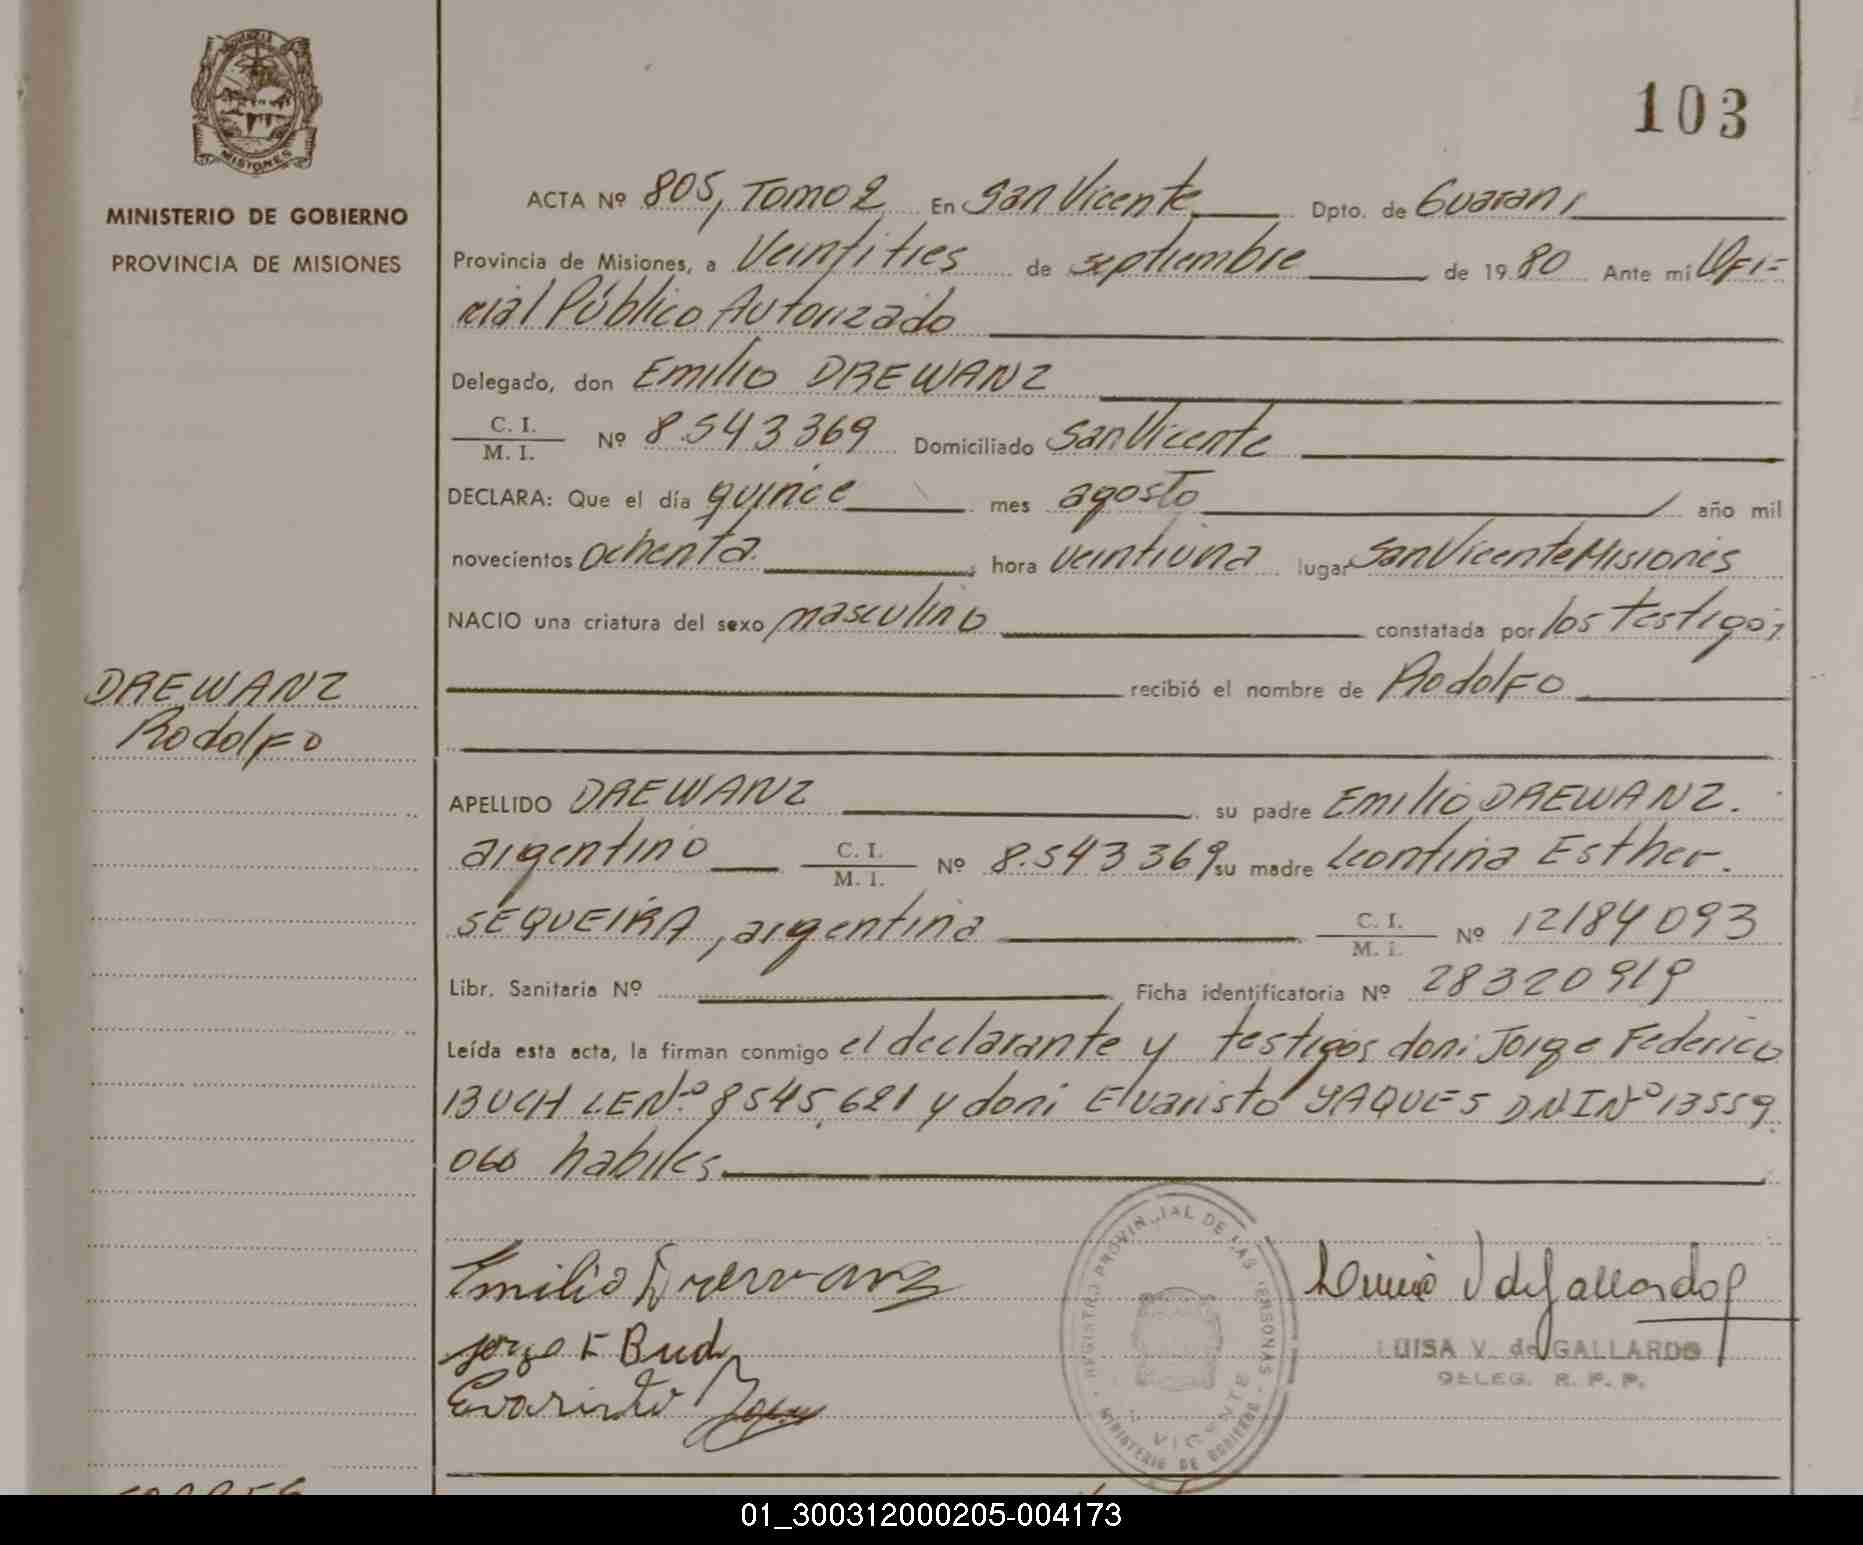 103
MINISTERIO DE GOBIERNO
PROVINCIA DE MISIONES
ACTA Nº 805, Tomo 2 En San Vicente Dpto. de Guarani
Provincia de Misiones, a Veintitres de septiembre de 1980 Ante mi Ofi=
cial Público Autorizado
Delegado, don Emilio DREWANZ
C. I.
M. I. Nº 8.543369 Domiciliado San Vicente
DECLARA: Que el día quince mes agosto año mil
novecientos ochenta hora veintiuna lugar San Vicente Misiones
NACIO una criatura del sexo masculino constatada por los testigos
recibió el nombre de Rodolfo
DREWANZ
Rodolfo
APELLIDO DREWANZ su padre Emilio DREWANZ.
argentino C. I.
M. I. Nº 8.543369 su madre Leontina Esther.
SEQUEIRA, argentina C. I.
M. I. Nº 12184093
Libr. Sanitaria Nº Ficha identificatoria Nº 28320919
Leída esta acta, la firman conmigo el declarante y testigos don: Jorge Federico
BUCH LE Nº 8545.621 y don: Evaristo YAQUES DNI Nº 13559.
060 habiles
Emilio Drewanz
Jorge F Buch
Evaristo
REGISTRO PROVINCIAL DE LAS PERSONAS
MINISTERIO DE GOBIERNO
VICENTE
LUISA V. de GALLARDO
DELEG. R. P. P.
MISIONES
01_300312000205-004173